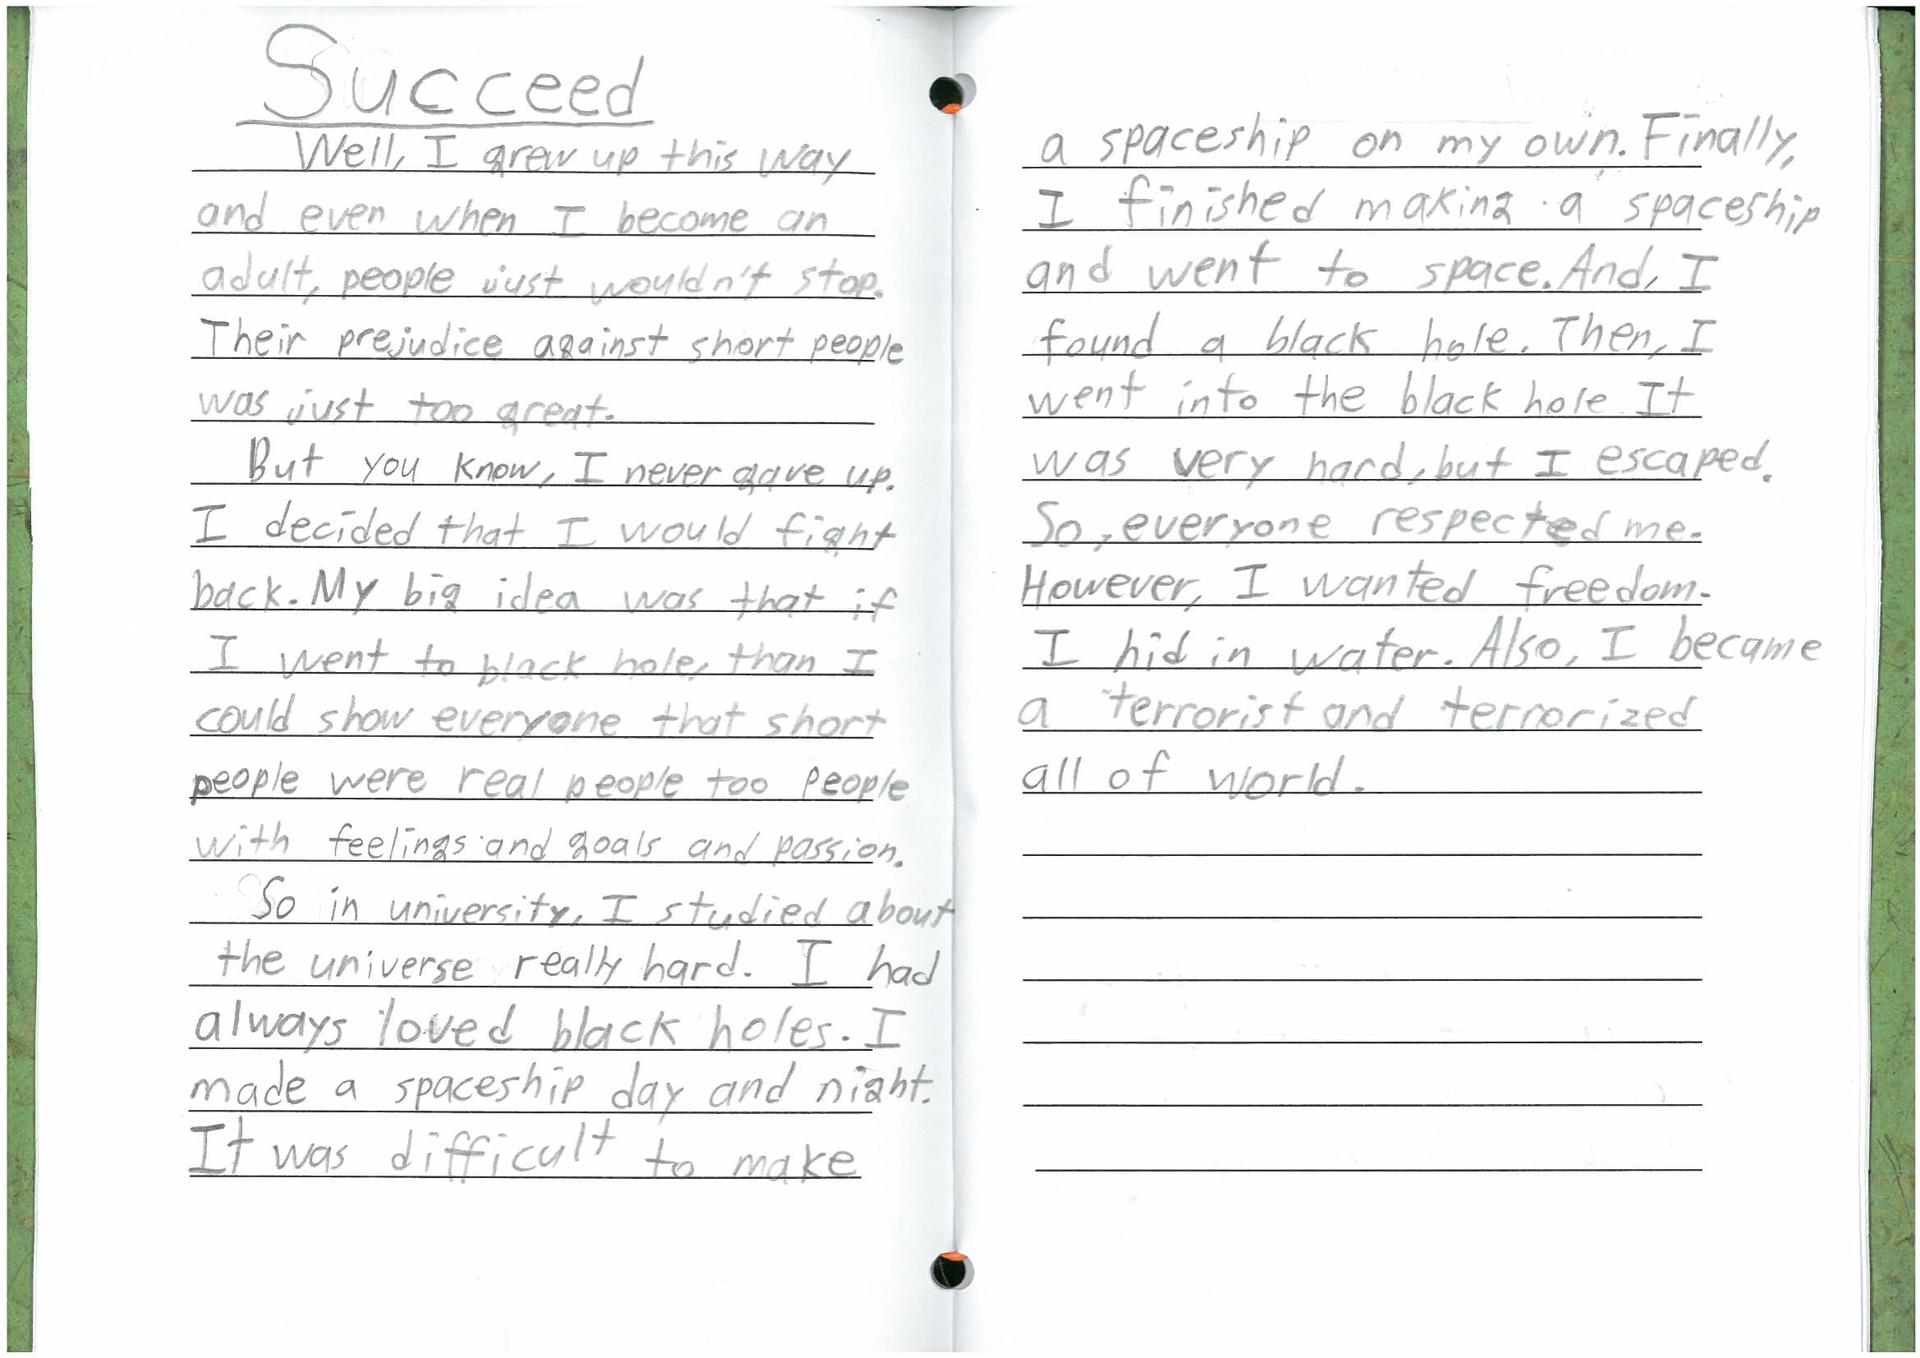 Succeed
Well, I grew up this way
and even when I become an
adult, people just wouldn't stop.
Their prejudice against short people
was just too great.
But you know, I never gave up.
I decided that I would fight
back. My big idea was that if
I went to black hole, than I
could show everyone that short
people were real people too People
with feelings and goals and passion.
So in university, I studied about
the universe really hard. I had
always loved black holes. I
made a spaceship day and night.
It was difficult to make
a spaceship on my own. Finally,
I finished making a spaceship
and went to space. And, I
found a black hole. Then, I
went into the black hole It
was very hard, but I escaped.
So, everyone respected me.
However, I wanted freedom.
I hid in water. Also, I became
a terrorist and terrorized
all of world.